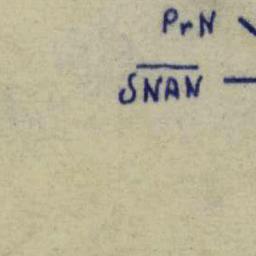 PrN
SNAN